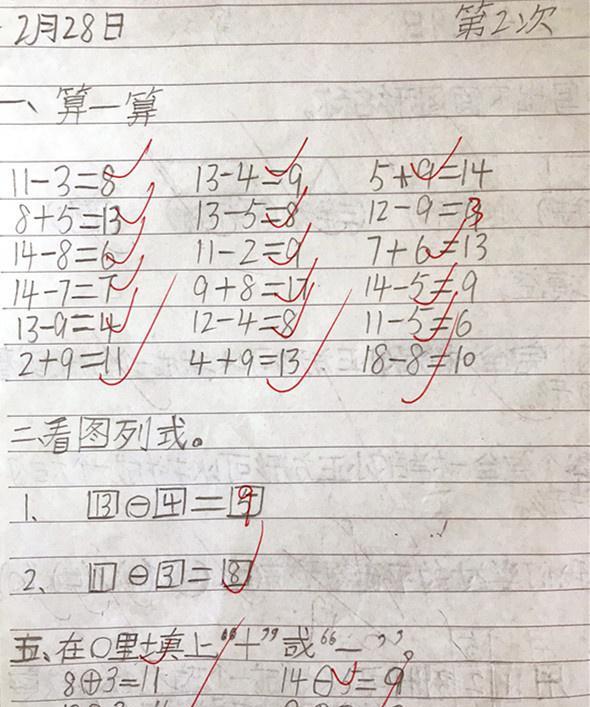 2月28日 第2次
一、算一算
11-3=8 13-4=9 5+9=14
8+5=13 13-5=8 12-9=3
14-8=6 11-2=9 7+6=13
14-7=7 9+8=17 14-5=9
13-9=4 12-4=8 11-5=6
2+9=11 4+9=13 18-8=10
二、看图列式。
1、 13⊖4=9
2、 11⊖3=8
五、在○里填上“+”或“-”。
8⊕3=11 14⊖5=9